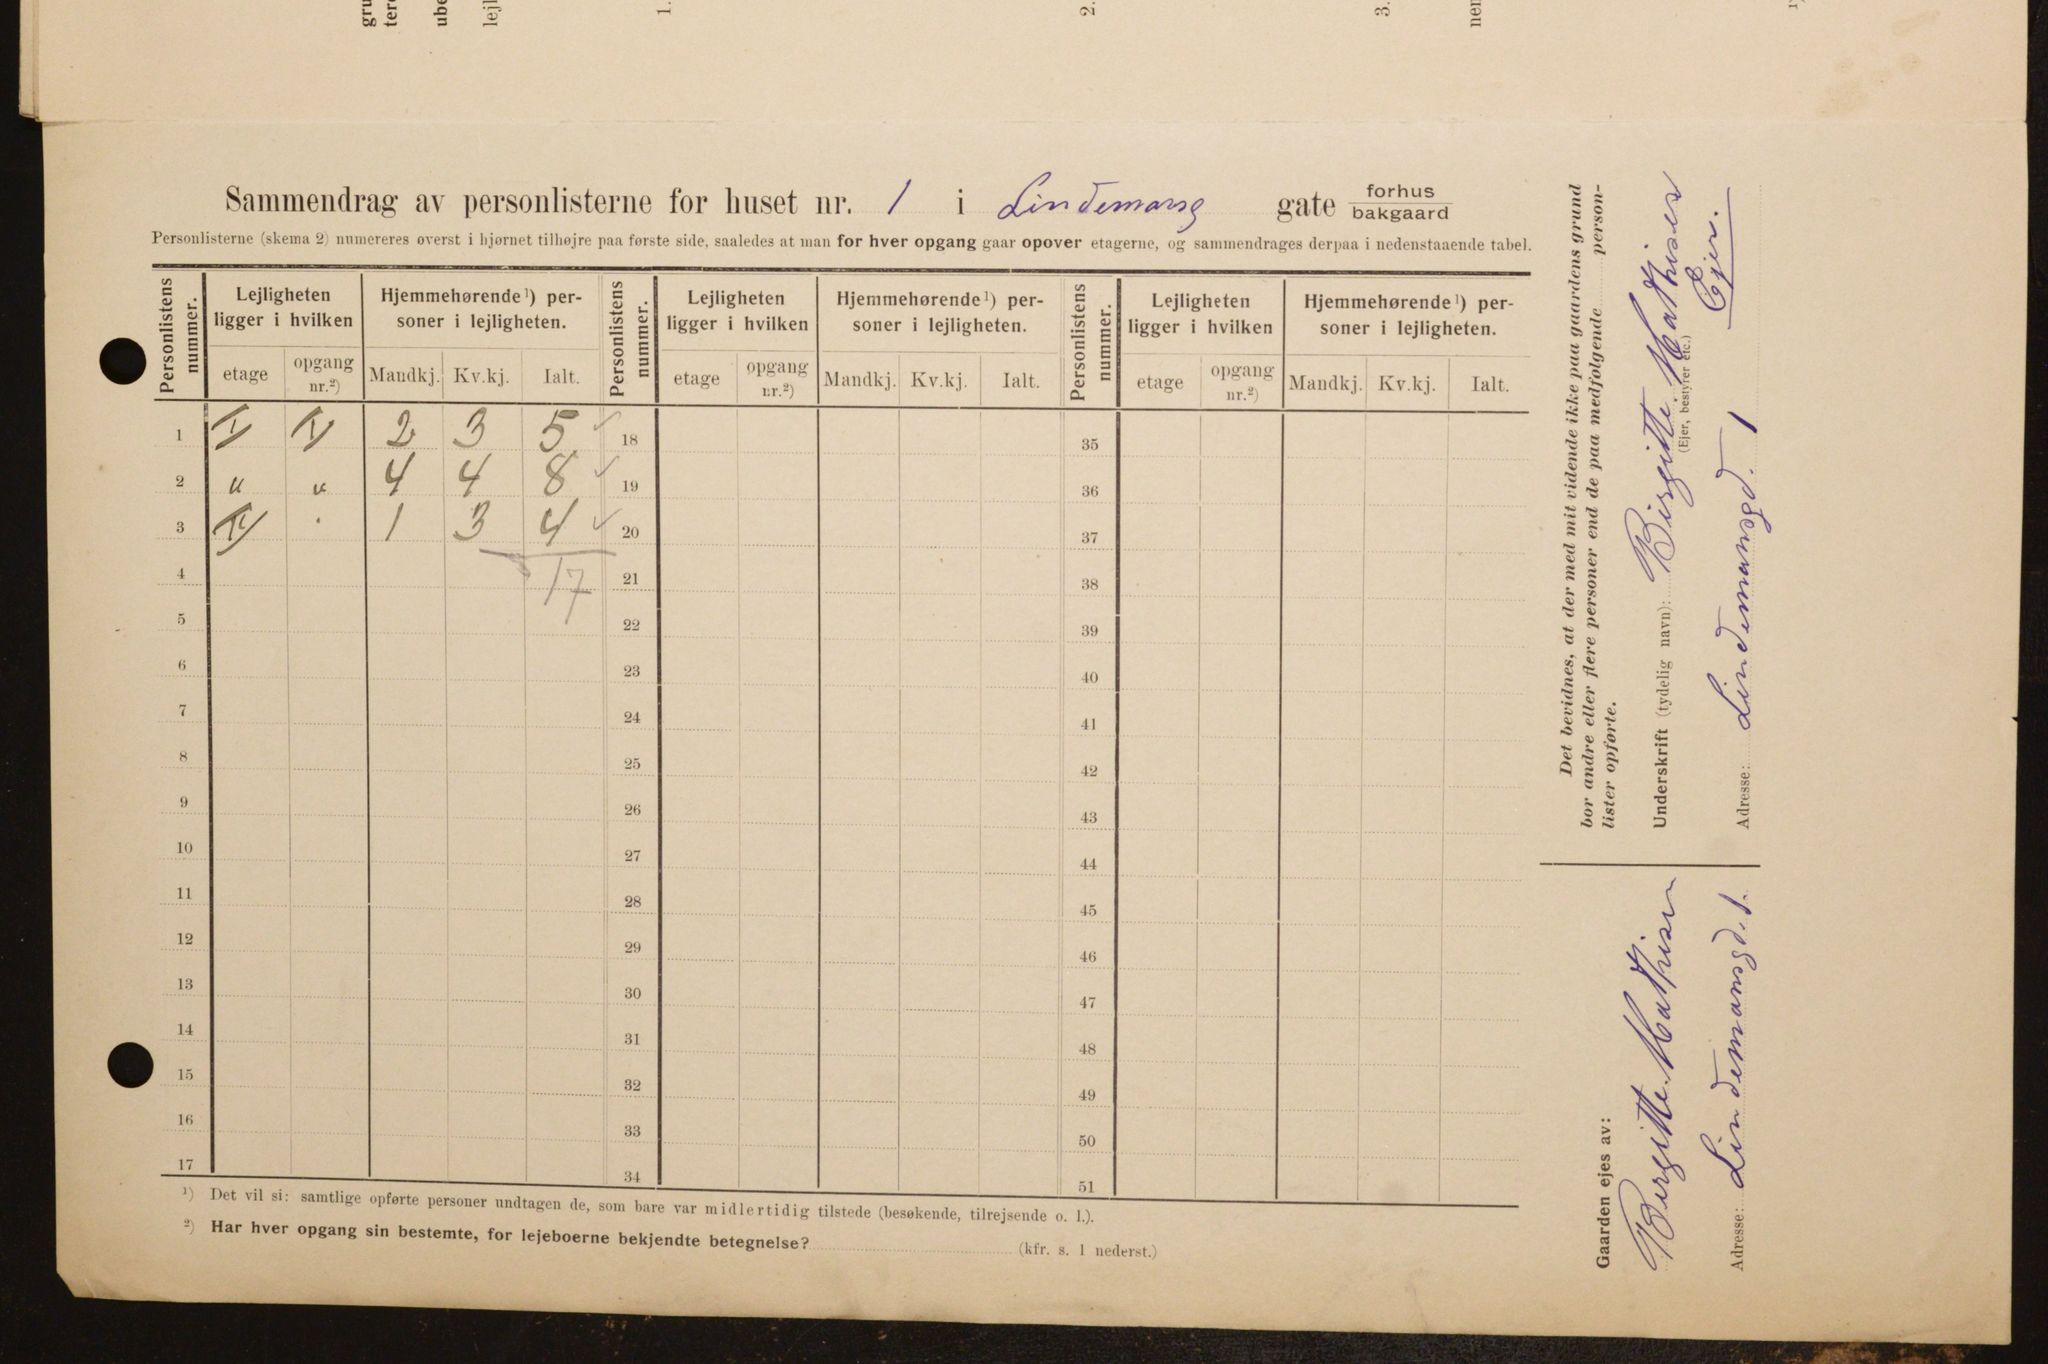 Sammendrag av personlisterne for huset nr. 1 i Lindemansg gate forhus
bakgaard
Personlisterne (skema 2) numereres øverst i hjørnet tilhøjre paa første side, saaledes at man for hver opgang gaar opover etagerne, og sammendrages derpaa i nedenstaaende tabel.
Personlistens nummer. Lejligheten ligger i hvilken Hjemmehørende¹) personer i lejligheten. Personlistens nummer. Lejligheten ligger i hvilken Hjemmehørende¹) personer i lejligheten. Personlistens nummer. Lejligheten ligger i hvilken Hjemmehørende¹) personer i lejligheten.
etage opgang nr.²) Mandkj. Kv.kj. Ialt. etage opgang nr.²) Mandkj. Kv.kj. Ialt. etage opgang nr.²) Mandkj. Kv.kj. Ialt.
1 2 3 5 ✓ 18 35
2 " " 4 4 8 ✓ 19 36
3 1 3 4 ✓ 20 37
4 17 21 38
5 22 39
6 23 40
7 24 41
8 25 42
9 26 43
10 27 44
11 28 45
12 29 46
13 30 47
14 31 48
15 32 49
16 33 50
17 34 51
¹) Det vil si: samtlige opførte personer undtagen de, som bare var midlertidig tilstede (besøkende, tilrejsende o. l.).
²) Har hver opgang sin bestemte, for lejeboerne bekjendte betegnelse? (kfr. s. 1 nederst.)
Det bevidnes, at der med mit vidende ikke paa gaardens grund
bor andre eller flere personer end de paa medfølgende person-
lister opførte.
Underskrift (tydelig navn): Birgitte Mathisen
(Ejer, bestyrer etc.)
Ejer.
Adresse: Lindemansgd. 1
Gaarden ejes av:
Birgitte Mathisen
Adresse: Lindemansgd. 1.